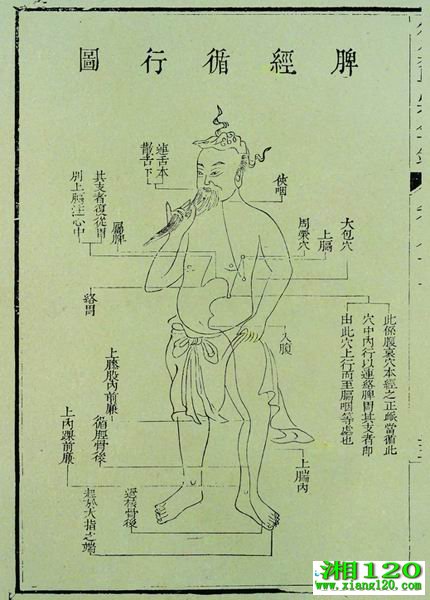 脾經循行圖
連舌本
散舌下
俠咽
大包穴
上膈
周榮穴
屬脾
其支者復從胃
別上膈注心中
絡胃
此係腹哀穴本經之正脈當循此
穴中內行以連絡脾胃其支者即
由此穴上行而至膈咽等處也
入腹
上膝股內前廉
循脛骨後
上內踝前廉
上腨內
過核骨後
起於大指之端
湘120
www.xiang120.com